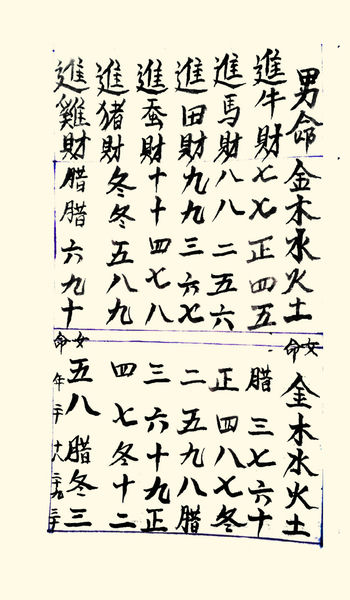 男命金木水火土
進牛財七七正四五
進馬財八八二五六
進田財九九三六七
進蚕財十十四七八
進猪財冬冬五八九
進雞財腊腊六九十
女命金木水火土
腊三七六十
正四八七冬
二五九八腊
三六十九正
四七冬十二
五八腊冬三
女命
年